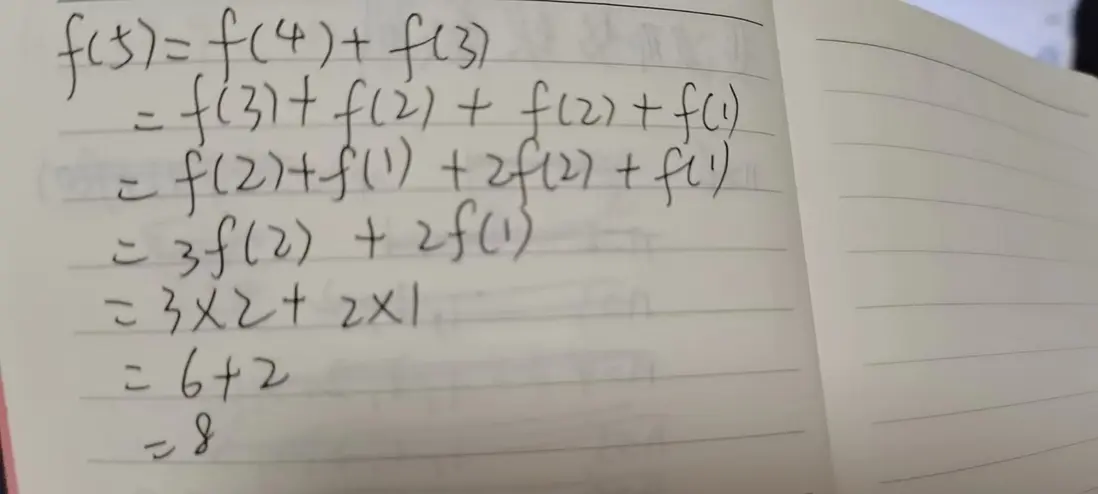 f(5)=f(4)+f(3)
=f(3)+f(2)+f(2)+f(1)
=f(2)+f(1)+2f(2)+f(1)
=3f(2)+2f(1)
=3×2+2×1
=6+2
=8